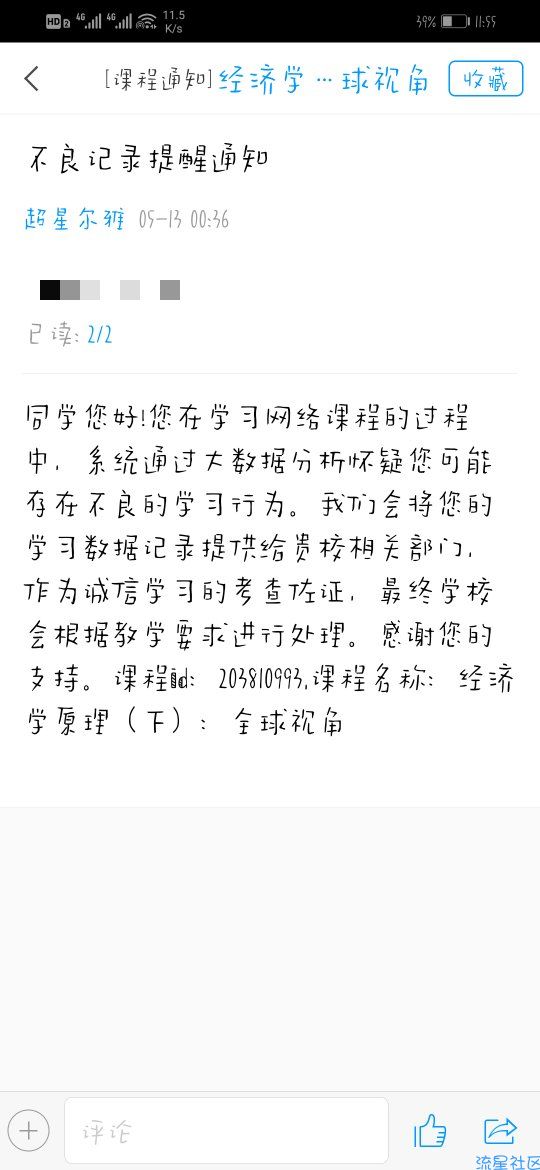 HD 2 4G 4G 11.5 K/s 39% 11:55
[课程通知]经济学…球视角 收藏
不良记录提醒通知
超星尔雅 05-13 00:36
已读: 2/2
同学您好!您在学习网络课程的过程
中，系统通过大数据分析怀疑您可能
存在不良的学习行为。我们会将您的
学习数据记录提供给贵校相关部门，
作为诚信学习的考查佐证，最终学校
会根据教学要求进行处理。感谢您的
支持。课程id：203810993,课程名称：经济
学原理（下）：全球视角
评论
流星社区